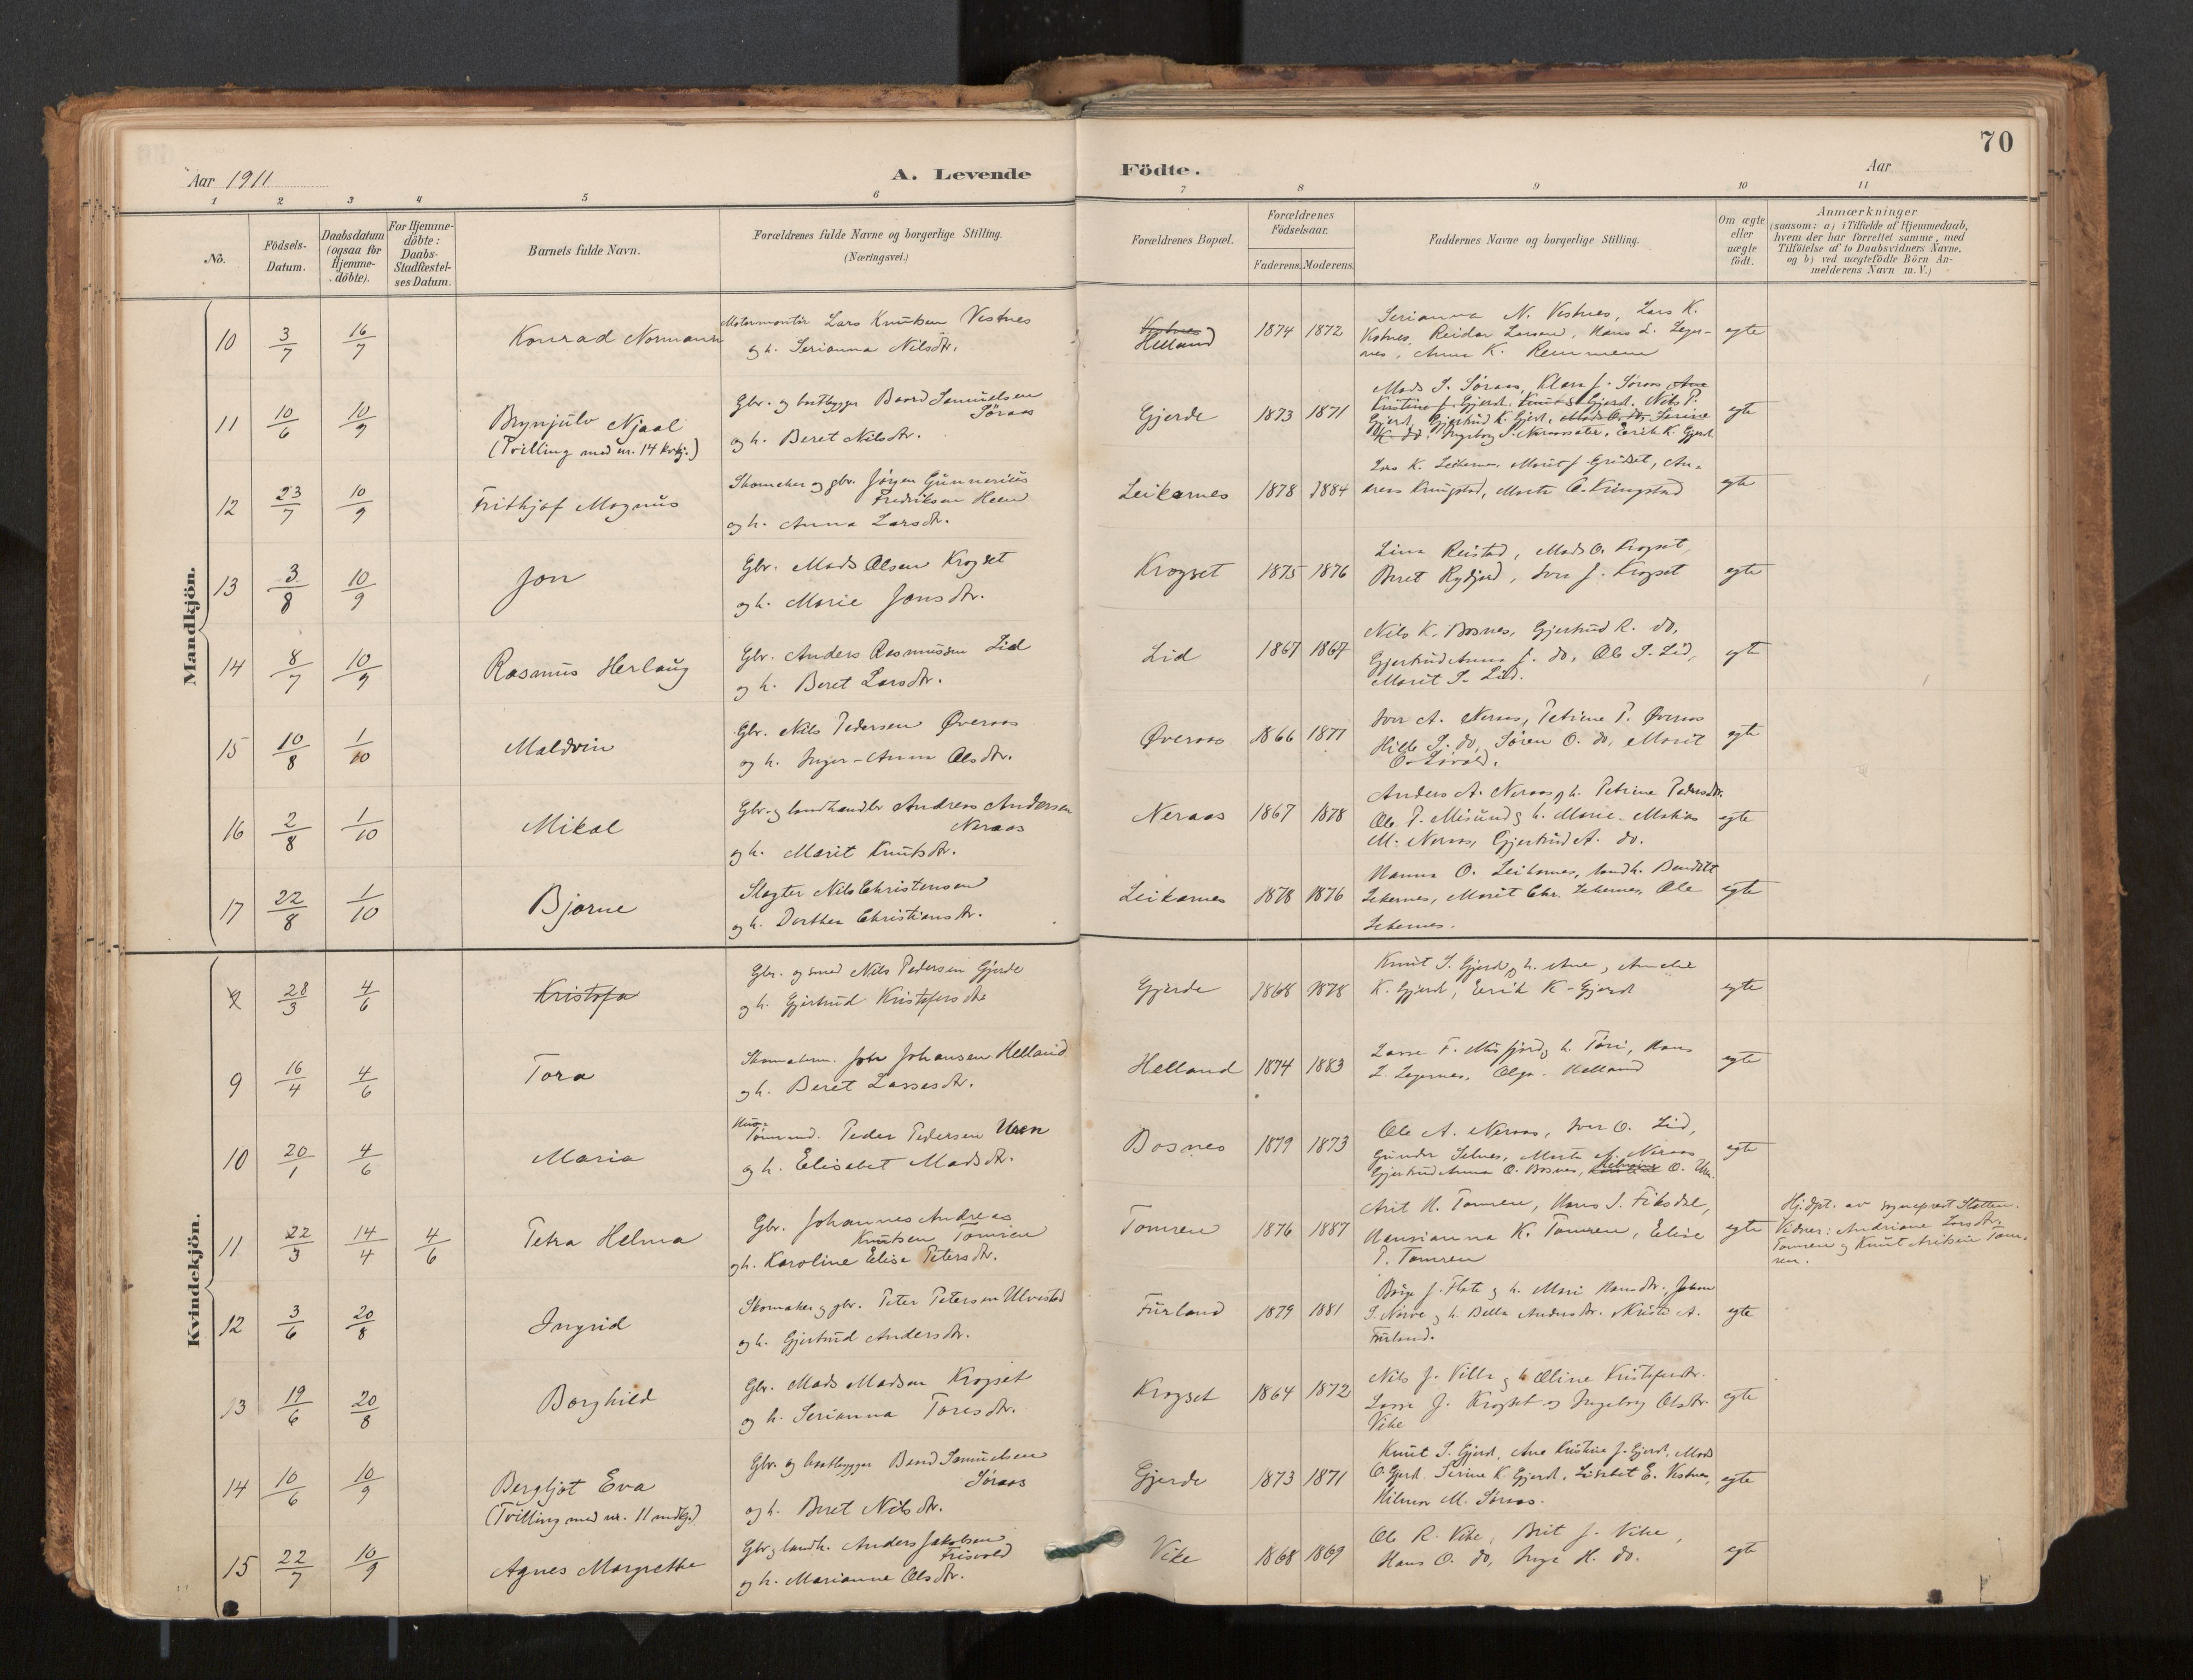 70
Aar 1911
A. Levende
Födte.
Aar
1 2 3 4 5 6 7 8 9 10 11
No.
Födsels-
Datum.
Daabsdatum
(ogsaa for
Hjemme-
döbte).
For Hjemme-
döbte:
Daabs-
Stadfæstel-
ses Datum.
Barnets fulde Navn.
Forældrenes fulde Navne og borgerlige Stilling.
(Næringsvei.)
Forældrenes Bopæl.
Forældrenes
Födselsaar.
Faderens. Moderens.
Faddernes Navne og borgerlige Stilling.
Om ægte
eller
uægte
födt.
Anmærkninger
(saasom: a) i Tilfælde af Hjemmedaab,
hvem der har forrettet samme, med
Tilföielse af to Daabsvidners Navne.
og b) ved uægtefödte Börn An-
melderens Navn m. V.)
Mandkjön.
10 3/7 16/7 Konrad Normann
Motormontör Lars Knutsen Vestnes
og h. Serianna Nilsdtr.
Vestnes
Helland
1874 1872
Serianna N. Vestnes, Lars K.
Vestnes, Reidar Larsen, Hans L. Leger-
nes, Anna K. Remmem
egte
11 10/6 10/9 Brynjulv Njaal
(Tvilling med nr. 14 kvkj.)
Gbr. og baatbygger Baard Samuelsen
Söraas
og h. Beret Nilsdtr.
Gjerde
1873 1871
Mads S. Söraas, Klara J. Söraas, Ane
Kristine J. Gjerd, Knut S. Gjerd, Nils P.
Gjerd, Gjertrud K. Gjerd, Mads O. do, Serine
K. do, Ingeborg S. Neraassæter, Eerik K. Gjerd.
egte
12 23/7 10/9 Frithjof Magnus
Skomaker og gbr. Jörgen Gunnerius
Fredriksen Heen
og h. Anna Larsdtr.
Leikarnes
1878 1884
Lars K. Leikernes, Marit J.
egte
13 3/8 10/9 Jon
Gbr. Mads Olsen Krogset
og h. Marie Jonsdtr.
Krogset
1875 1876
Lina Reistad, Mads O. Krogset,
Beret Rydjord, Iver J. Krogset
egte
14 8/7 10/9 Rasmus Herlaug
Gbr. Anders Rasmussen Lid
og h. Beret Larsdtr.
Lid
1867 1867
Nils K. Bosnes, Gjertrud R. do,
Gjertrud Anna J. do, Ole S. Lid,
Marit S. Lid.
egte
15 10/8 1/10 Maldvin
Gbr. Nils Pedersen Øveraas
og h. Inger-Anna Olsdtr.
Øveraas
1866 1877
Iver A. Neraas, Petrine P. Øveraas
Hilda S. do, Sören O. do, Marit
egte
16 2/8 1/10 Mikal
Gbr. og landhandler Andreas Andersen
Neraas
og h. Marit Knutsdtr.
Neraas
1867 1878
Anders A. Neraas og h. Petrine Pedersdtr.
Ole P. Misund og h. Marie, Mathias
M. Neraas, Gjertrud A. do.
egte
17 22/8 1/10 Bjarne
Slagter Nils Christensen
og h. Dorthea Christiansdtr.
Leikarnes
1878 1876
Hanna O. Leikarnes, landh. Bendikt
Lekernes, Marit Chr. Lekernes, Ole
Lekernes.
egte
Kvindekjön.
28/3 4/6 Kristofa
Gbr. og smed Nils Pedersen Gjerde
og h. Gjertrud Kristofersdtr
Gjerde
1868 1878
Knut S. Gjerd og h. Ane, Amalie
K. Gjerd, Eerik K. Gjerd
egte
9 16/4 4/6 Tora
Skomakerm. John Johansen Helland
og h. Beret Lassesdtr.
Helland
1874 1883
Lasse F. Misfjord og h. Turi, Hans
L. Legernes, Olga Helland
egte
10 20/1 4/6 Maria
Hus-
Tömmerm. Peder Pedersen Uren
og h. Elisabet Madsdtr.
Bosnes
1879 1873
Ole A. Neraas, Iver O. Lid,
Gunder Selnes, Marta A. Neraas
Gjertrud Anna O. Bosnes, O. Uren.
egte
11 22/3 14/4 4/6 Petra Helma
Gbr. Johannes Andreas
Knutsen Tomren
og h. Karoline Elise Petersdtr.
Tomren
1876 1887
Arit H. Tomren, Hans S. Fiksdal,
Hansianna K. Tomren, Elise
P. Tomren
egte
Hj.dpt. av sogneprest Sletten.
Vidner: Andriane Larsdtr.
Tomren og Knut Aritsen Tom-
ren.
12 3/6 20/8 Ingrid
Skomaker og gbr. Peter Petersen Ulvestad
og h. Gjertrud Andersdtr.
Furland
1879 1881
Börge J. Flate og h. Mari Hansdtr. Johan
S. Nerve og h. Bella Andersdtr. Knut A.
Furland.
egte
13 19/6 20/8 Borghild
Gbr. Mads Madsen Krogset
og h. Serianna Toresdtr.
Krogset
1864 1872
Nils J. Villa og h. Oline Kristofersdtr.
Lasse J. Krogset og Ingeborg Olsdtr.
Vike
egte
14 10/6 10/9 Bergljot Eva
(Tvilling med nr. 11 mdkj.)
Gbr. og baatbygger Baard Samuelsen
Söraas
og h. Beret Nilsdtr.
Gjerde
1873 1871
Knut S. Gjerd, Ane Kristine J. Gjerd, Mads
O. Gjerd, Serine K. Gjerd, Lisabet E. Vestnes,
Hilmar M. Söraas.
egte
15 22/7 10/9 Agnes Margrethe
Gbr. og landh. Anders Jakobsen
Frisvold
og h. Marianne Olsdtr.
Vike
1868 1869
Ole R. Vike, Brit J. Vike,
Hans O. do, Inga H. do.
egte